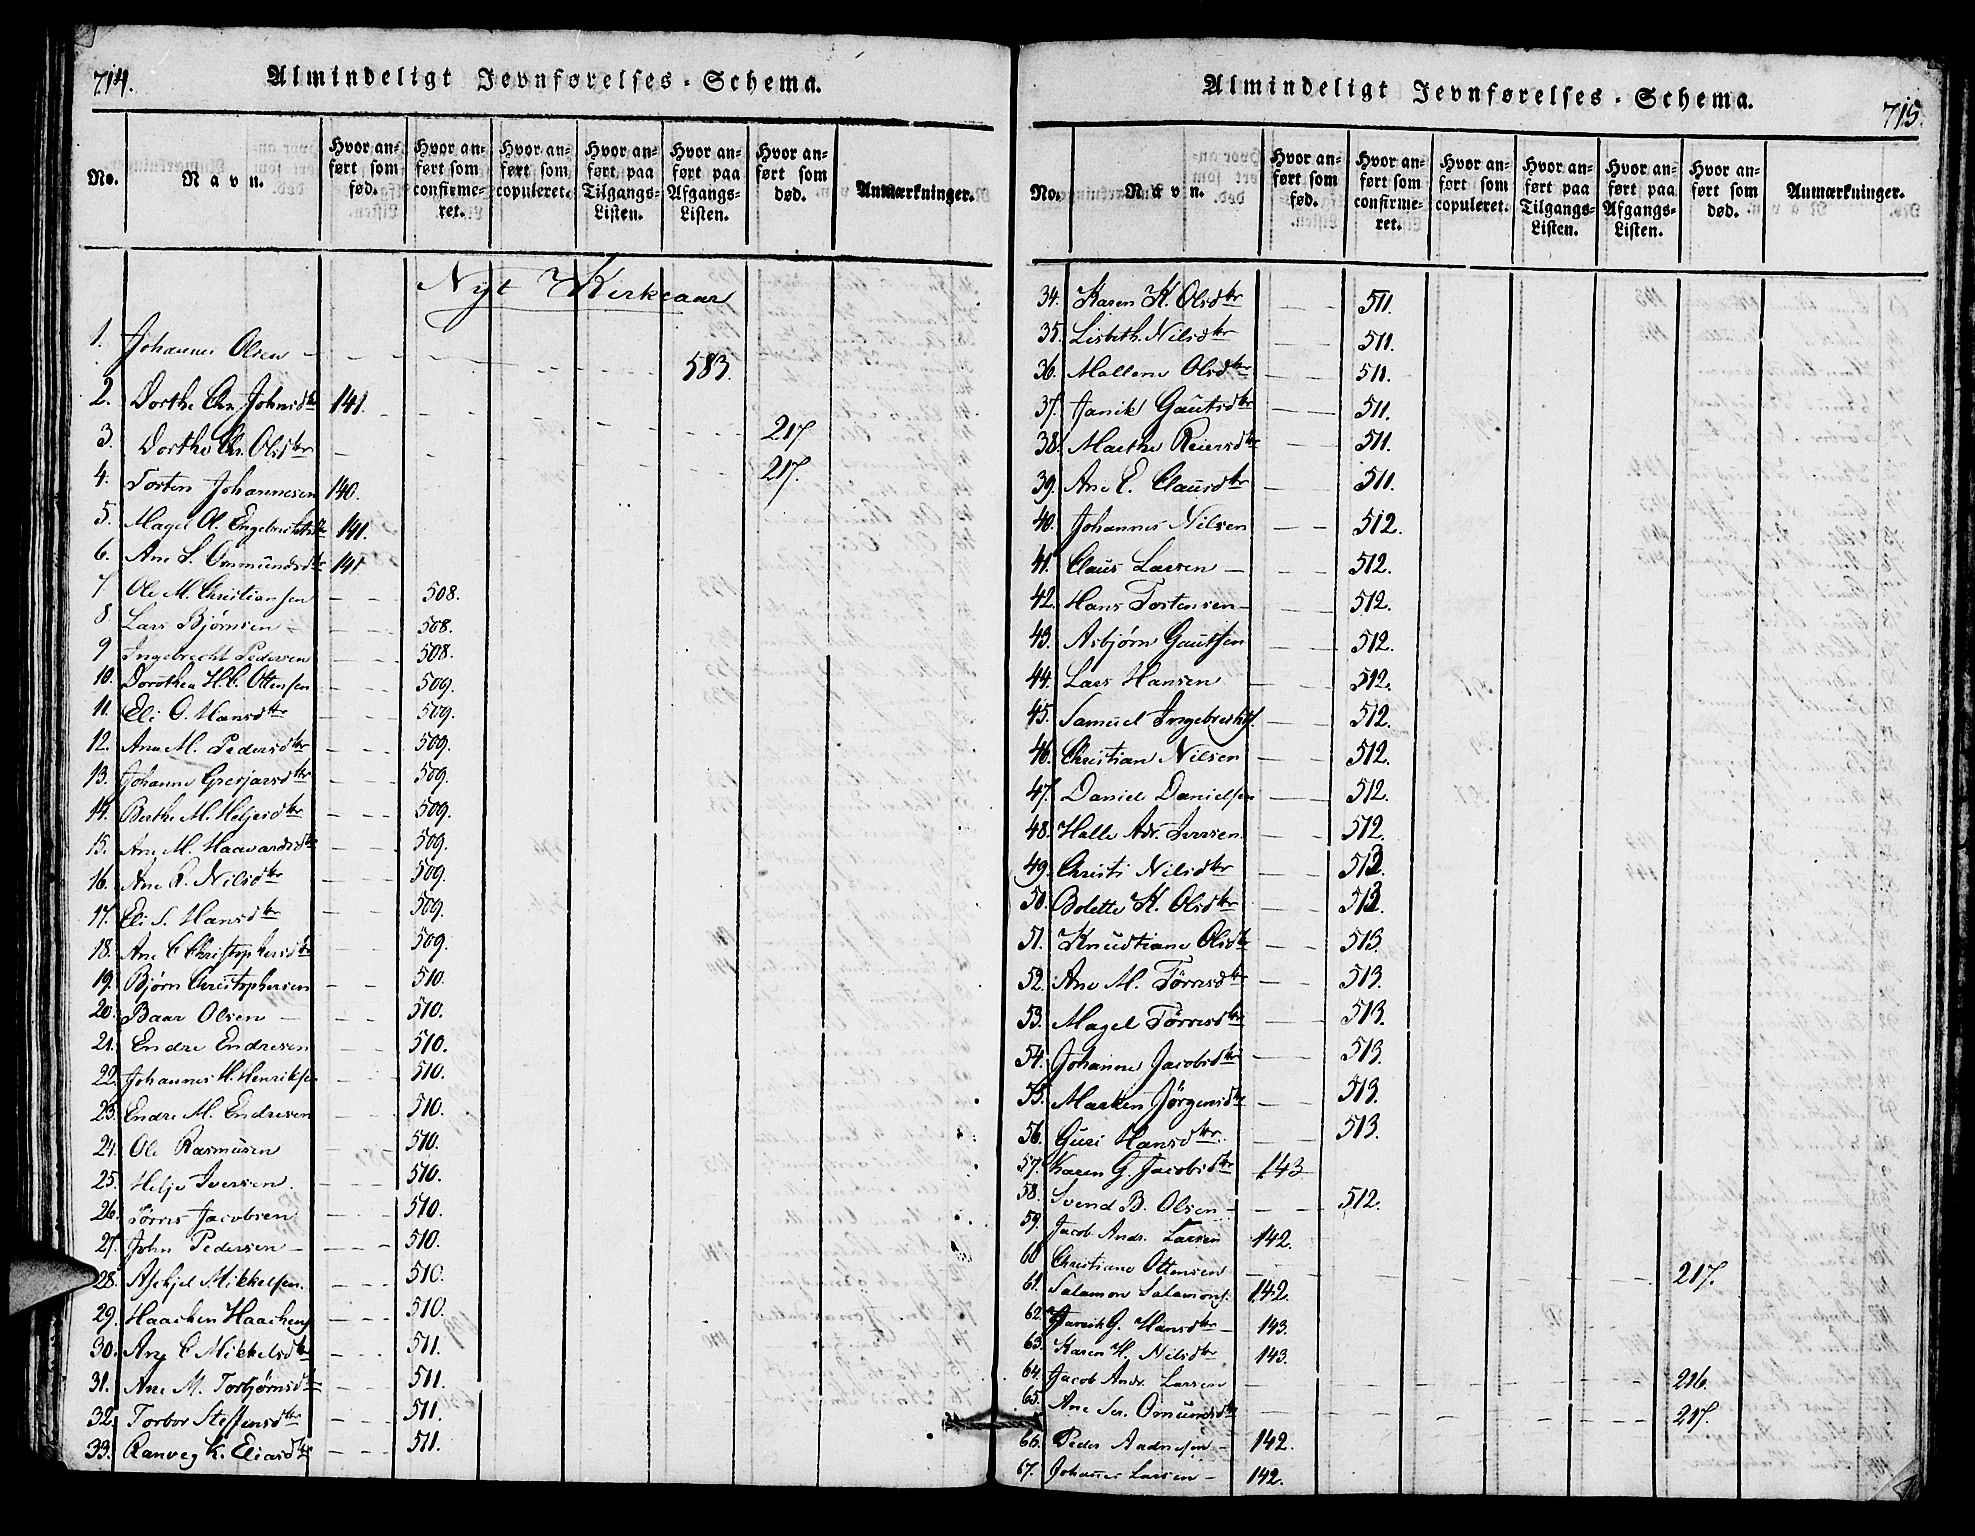 714.
Almindeligt Jevnførelses-Schema.
No.
Navn.
Hvor anført som fød.
Hvor anført som confirmeret.
Hvor anført som copuleret.
Hvor anført paa Tilgangs-Listen.
Hvor anført paa Afgangs-Listen.
Hvor anført som død.
Anmærkninger.
Nyt Kirkeaar
1. Johannes Olsen 583.
2. Dorthe Chr. Johnsdtr 141. 217.
3. Dorthe Chr. Olsdtr 217.
4. Torsten Johannesen 140.
5. Magel O. Engebrethsdtr 141.
6. Ane S. Ommundsdtr 141
7 Ole M. Christiansen 508.
8 Lars Bjørnsen 508.
9 Ingebrecht Pedersen 508.
10. Dorothea H.C. Ottensen 509.
11. Eli O. Hansdtr 509.
12. Ane M. Pedersdtr 509.
13. Johanne Gresjarsdtr 509.
14. Berthe M. Heljesdtr 509.
15. Ane M. Haavardsdtr 509.
16. Ane R. Nilsdtr 509.
17. Eli S. Hansdtr 509.
18. Ane C Christophersdtr 509.
19. Bjørn Christophersen 510.
20. Baar Olsen 510.
21. Endre Endresen 510.
22. Johannes H. Henriksen 510.
23. Endre M. Endresen 510.
24. Ole Rasmusen 510.
25. Helje Iversen. 510.
26. Tørres Jacobsen 510.
27. John Pedersen 510.
28. Asekjel Mikkelsen. 510.
29. Haachen Haachens 510.
30. Ane C Mikkelsdtr 511.
31. Ane M. Torbjørnsdtr 511.
32. Torbor Steffensdtr 511.
33. Ranveg K. Eliasdtr 511.
Almindeligt Jevnførelses-Schema.
715.
No.
Navn.
Hvor anført som fød.
Hvor anført som confirmeret.
Hvor anført som copuleret.
Hvor anført paa Tilgangs-Listen.
Hvor anført paa Afgangs-Listen.
Hvor anført som død.
Anmærkninger.
34. Karen K. Olsdtr 511.
35. Lisbeth Nilsdtr 511.
36. Mallene Olsdtr 511.
37. Janik Gautsdtr 511.
38. Marthe Reiersdtr 511.
39. Ane E. Clausdtr 511.
40. Johannes Nilsen 512.
41. Claus Larsen 512.
42. Hans Tostensen 512.
43. Asbjørn Gautsen 512.
44. Lars Hansen 512.
45. Samuel Ingebrechts. 512.
46. Christian Nilsen 512.
47. Daniel Danielsen 512.
48. Halle Adr. Iversen 512.
49. Christi Nilsdtr 513.
50. Bolette K. Olsdtr 513.
51. Knudtiane Olsdtr 513.
52. Ane M. Tørresdtr 513.
53. Magel Tørresdtr 513.
54. Johanne Jacobsdtr 513.
55. Marken Jørgensdtr 513.
56. Guri Hansdtr. 513.
57. Karen G. Jacobsdtr 143
58. Svend B. Olsen 512.
59. Jacob Andr. Larsen 142.
60 Christiane Ottensen 217.
61. Salamon Salamons. 142.
62. Janik G. Hansdtr 143.
63. Karen H. Nilsdtr 143.
64. Jacob Andr. Larsen 216.
65. Ane Ser. Omundsdtr 217.
66. Peder Andresen 142.
67. Johannes Larsen 142.